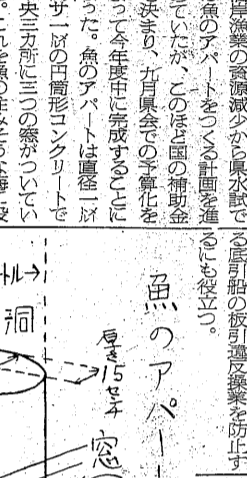 岸漁業の資源減少から県水試で
魚のアパートをつくる計画を進
ていたが、このほど国の補助金
決まり、九月県会での予算化を
って今年度中に完成することに
った。魚のアパートは直径一㍍
サ一㍍の円筒形コンクリートで
央三カ所に三つの窓がついてい
。これを魚の住みそうな海に沈
る底引船の板引違反操業を防止す
るにも役立つ。
魚のアパー
トル→
洞
厚さ15センチ
窓